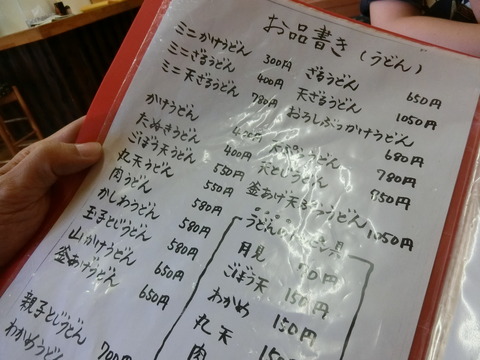 お品書き (うどん)
ミニかけうどん 300円
ミニざるうどん 400円
ミニ天ざるうどん 780円
かけうどん 400円
たぬきうどん 400円
ごぼう天うどん 550円
丸天うどん 550円
肉うどん 580円
かしわうどん 580円
玉子とじうどん 580円
山かけうどん 650円
釜あげうどん 650円
親子とじうどん 700円
わかめうどん
ざるうどん 650円
天ざるうどん 1050円
おろしぶっかけうどん 680円
うどん 780円
天とじうどん 850円
釜あげ天ざるうどん 1050円
うどんの 具
月見 70円
ごぼう天 150円
わかめ 150円
丸天 150円
肉